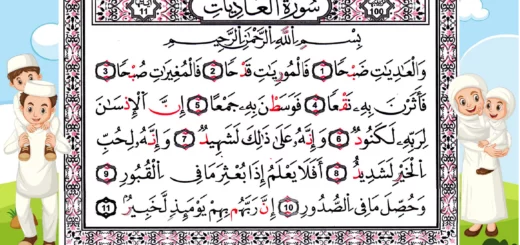 11 سُورَةُ الْعَادِيَاتِ 100
بِسْمِ اللَّهِ الرَّحْمَٰنِ الرَّحِيمِ
وَالْعَادِيَاتِ ضَبْحًا 1 فَالْمُورِيَاتِ قَدْحًا 2 فَالْمُغِيرَاتِ صُبْحًا 3
فَأَثَرْنَ بِهِ نَقْعًا 4 فَوَسَطْنَ بِهِ جَمْعًا 5 إِنَّ الْإِنْسَانَ
لِرَبِّهِ لَكَنُودٌ 6 وَإِنَّهُ عَلَىٰ ذَٰلِكَ لَشَهِيدٌ 7 وَإِنَّهُ لِحُبِّ
الْخَيْرِ لَشَدِيدٌ 8 أَفَلَا يَعْلَمُ إِذَا بُعْثِرَ مَا فِي الْقُبُورِ 9
وَحُصِّلَ مَا فِي الصُّدُورِ 10 إِنَّ رَبَّهُمْ بِهِمْ يَوْمَئِذٍ لَخَبِيرٌ 11